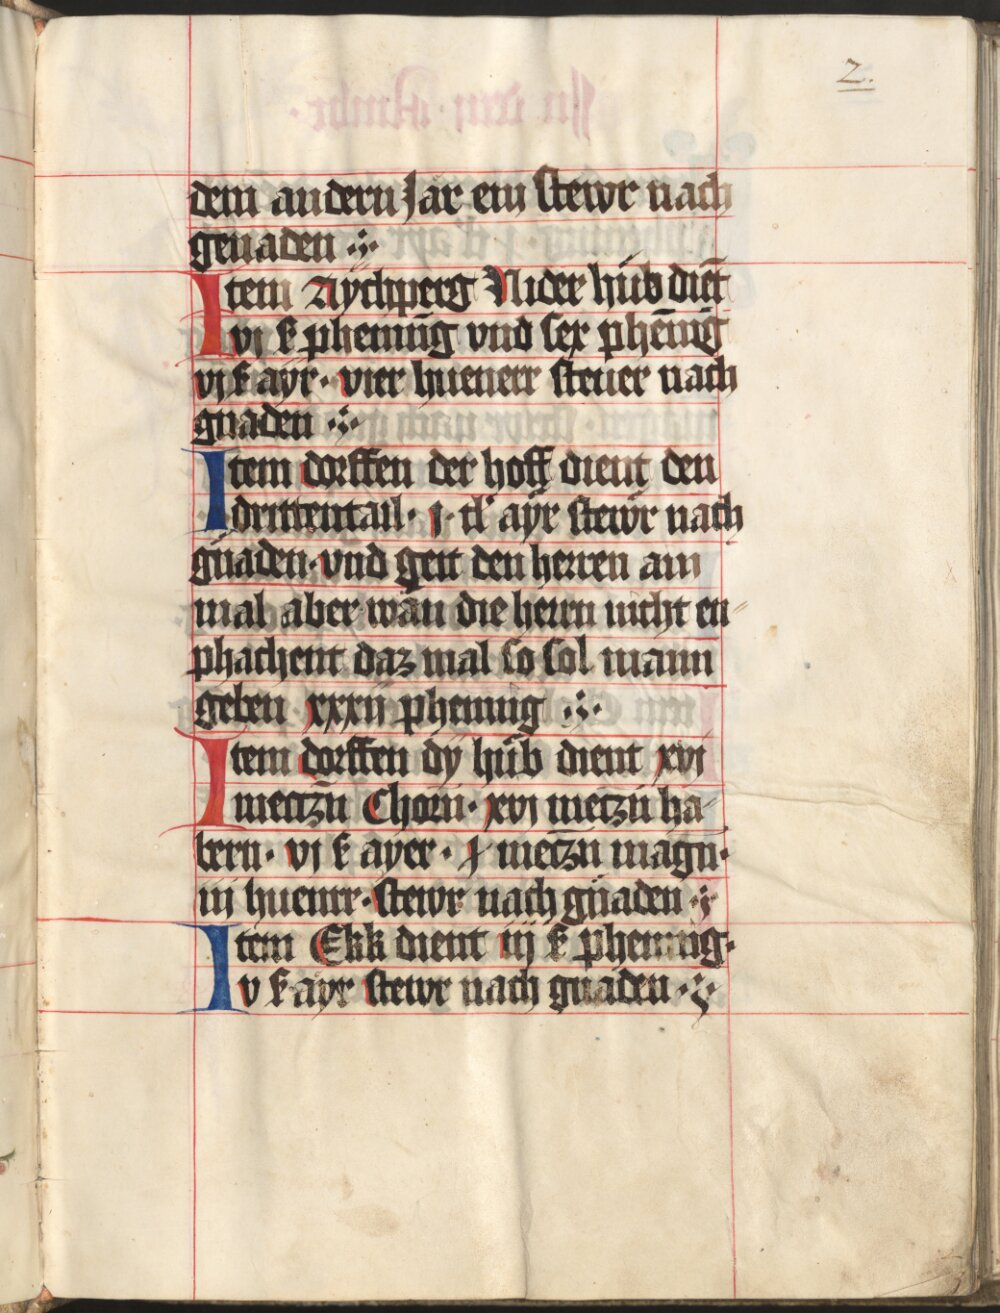 2.
dem andern Jar ein stewr nach
genaden
Item Aychperg Nider hůb dien̄t
vj ß phenning vnd sex phēnīg
vj ß ayr · vier huenerr steuer nach
gnaden
Item dorffen der hoff dient den
drittentail · j · tl ayr stewr nach
gnaden · vnd geit den herren ain
mal aber wan die herrn nicht en
phachent daz mal so sol mann
geben xxxij phening
Item dorffen dy hůb dient xvj
metzn̄ Chorn · xvj metzn̄ ha
bern · vj ß ayer · j metzn̄ magn ·
iij huenrr · stewr nach gnaden
Item Ekk dient iij ß phennig ·
v ß ayr stewr nach gnaden